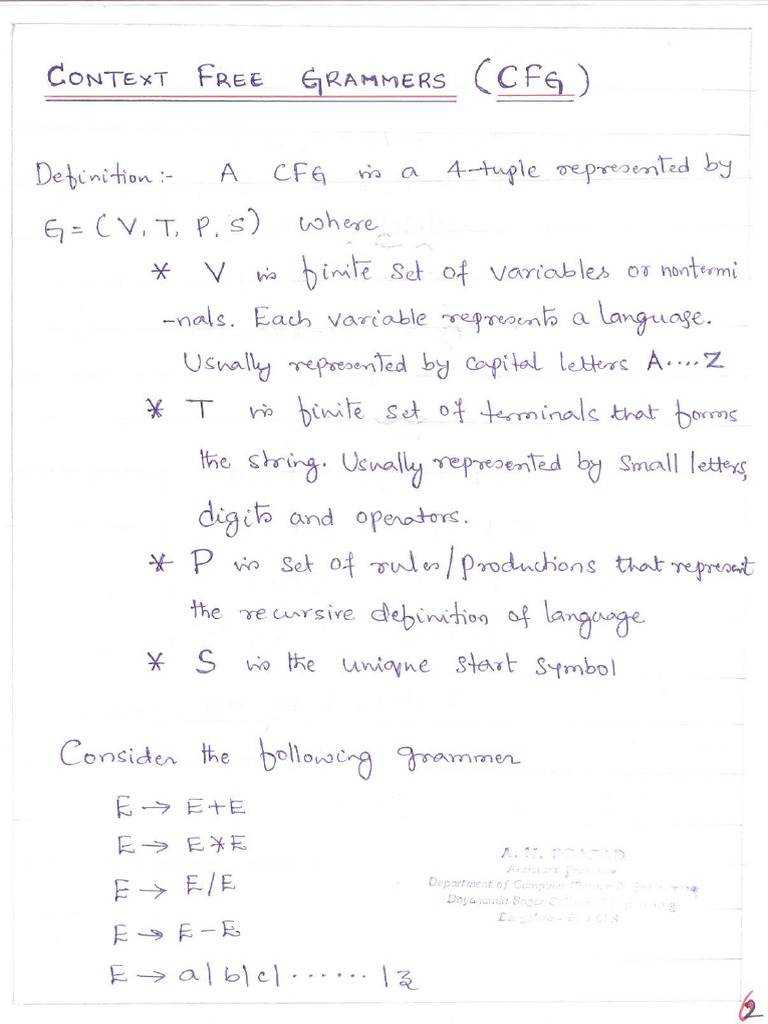 CONTEXT FREE GRAMMERS (CFG)
Definition :- A CFG is a 4-tuple represented by
G = (V, T, P, S) where
* V is finite set of variables or nontermi
-nals. Each variable represents a language.
Usually represented by capital letters A....Z
* T is finite set of terminals that forms
the string. Usually represented by small letters,
digits and operators.
* P is set of rules/productions that represent
the recursive definition of language
* S is the unique start symbol
Consider the following grammer
E → E+E
E → E*E
E → E/E
E → E-E
E → a|b|c|......|z
A. M. PRASAD
Department of
Dayananda Sagar
Bangalore
2